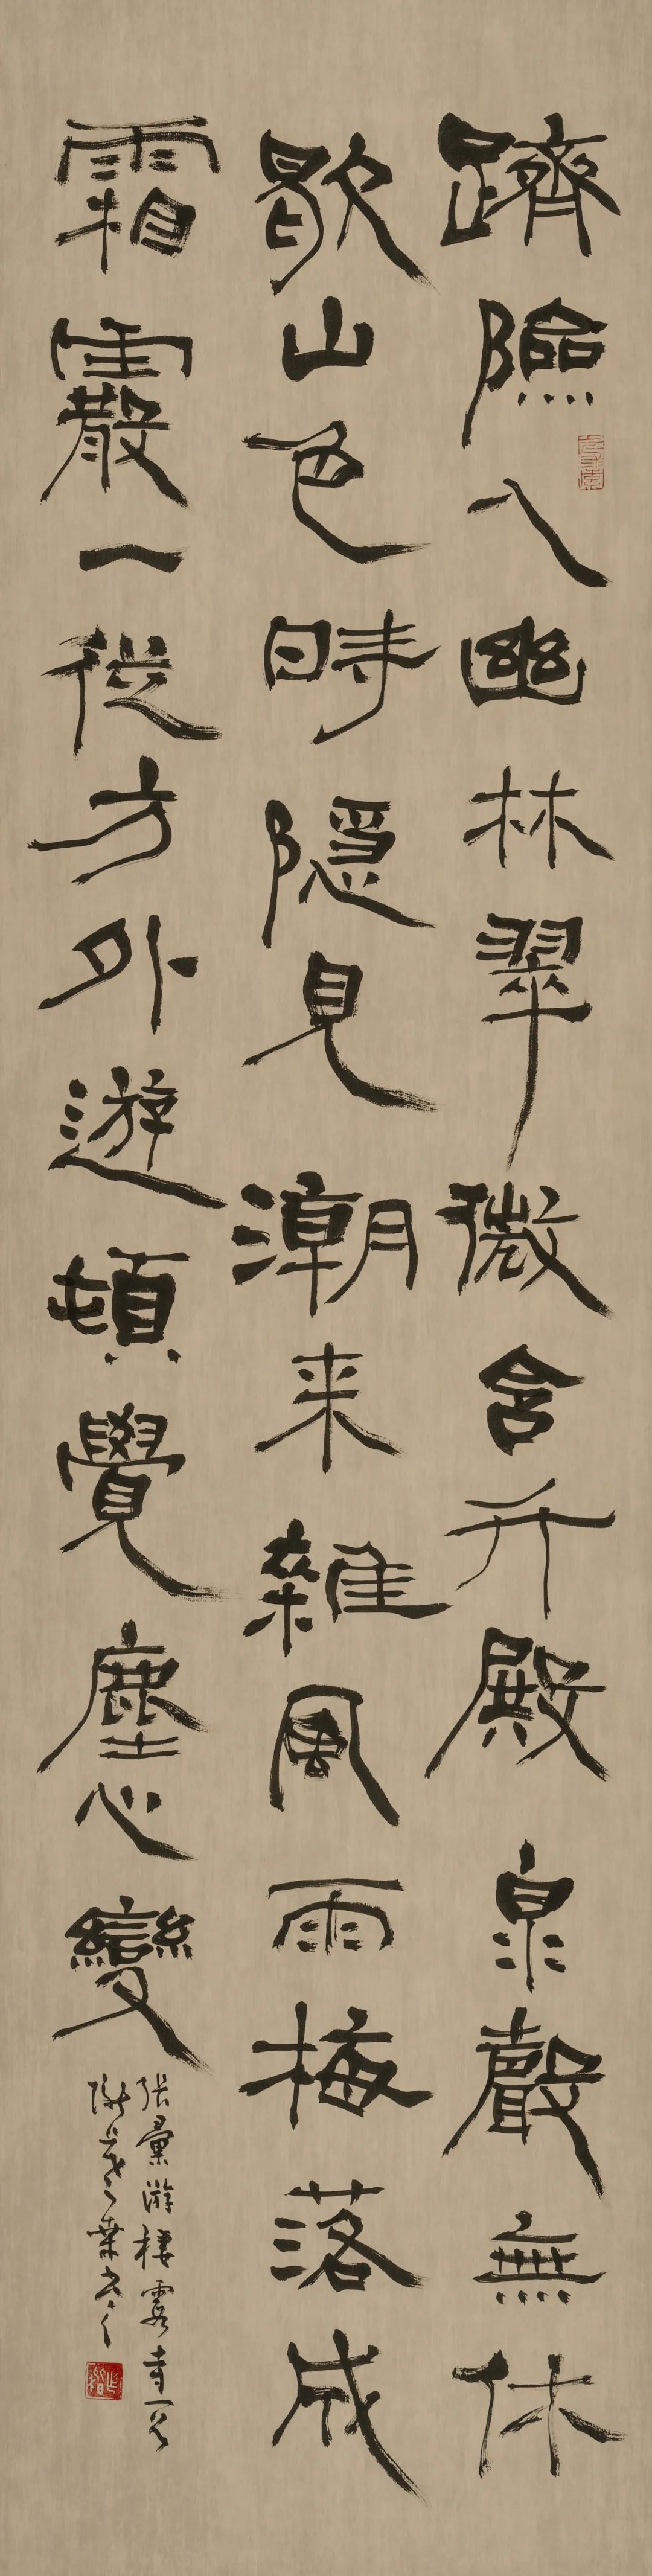 躋險入幽林翠微含竹殿泉聲無休
歇山色時隱見潮来雜風雨梅落成
霜霰一從方外遊頓覺塵心變
張彙游棲霞寺一首